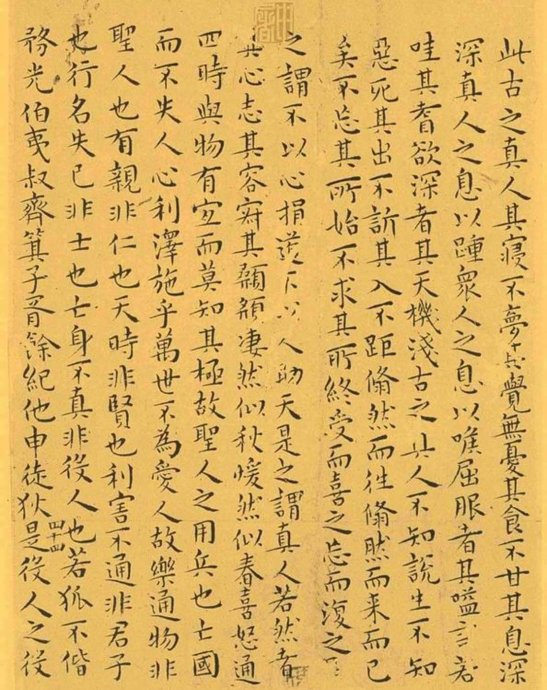 此古之真人其寝不夢其覺無憂其食不甘其息深
深真人之息以踵衆人之息以喉屈服者其嗌言若
哇其耆欲深者其天機淺古之真人不知說生不知
惡死其出不訢其入不距翛然而往翛然而来而已
矣不忘其所始不求其所終受而喜之忘而復之
之謂不以心捐道不以人助天是之謂真人若然者
其心志其容寂其顙頯凄然似秋煖然似春喜怒通
四時與物有宜而莫知其極故聖人之用兵也亡國
而不失人心利澤施乎萬世不為愛人故樂通物非
聖人也有親非仁也天時非賢也利害不通非君子
也行名失己非士也亡身不真非役人也若狐不偕
務光伯夷叔齊箕子胥餘紀他申徒狄是役人之役
四十四